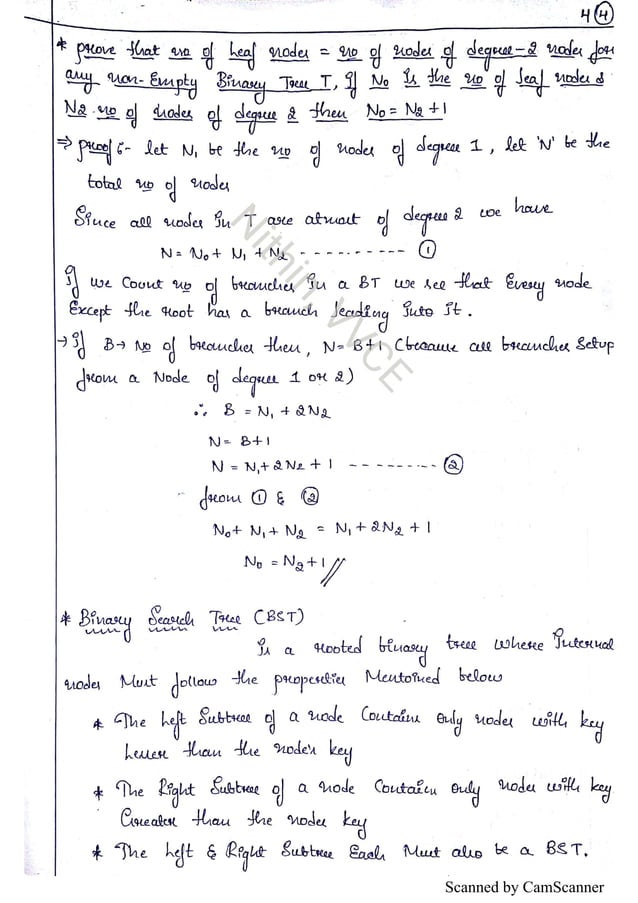 4 4
* Prove that no of Leaf nodes = no of nodes of degree-2 nodes for
any non-Empty Binary Tree T, If No is the no of leaf nodes &
N2 no of nodes of degree 2 then N0 = N2 + 1
⇒ proof :- let N1 be the no of nodes of degree 1, let 'N' be the
total no of nodes
Since all nodes in T are atmost of degree 2 we have
N = N0 + N1 + N2 - - - - - - - - - - ①
If we Count no of branches in a BT we see that Every node
Except the root has a branch leading into it.
→ If B → No of branches then, N = B+1 (because all branches Setup
from a Node of degree 1 or 2)
∴ B = N1 + 2N2
N = B+1
N = N1 + 2N2 + 1 - - - - - - - - ②
from ① & ②
N0 + N1 + N2 = N1 + 2N2 + 1
N0 = N2 + 1 //
* Binary Search Tree (BST)
Is a rooted binary tree where Internal
nodes Must follow the properties Mentoined below
* The Left Subtree of a node Contains Only nodes with key
lesser than the node's key
* The Right Subtree of a node Contain only nodes with key
Greater than the nodes key
* The Left & Right Subtree Each Must also be a BST.
Nithin, VVCE
Scanned by CamScanner